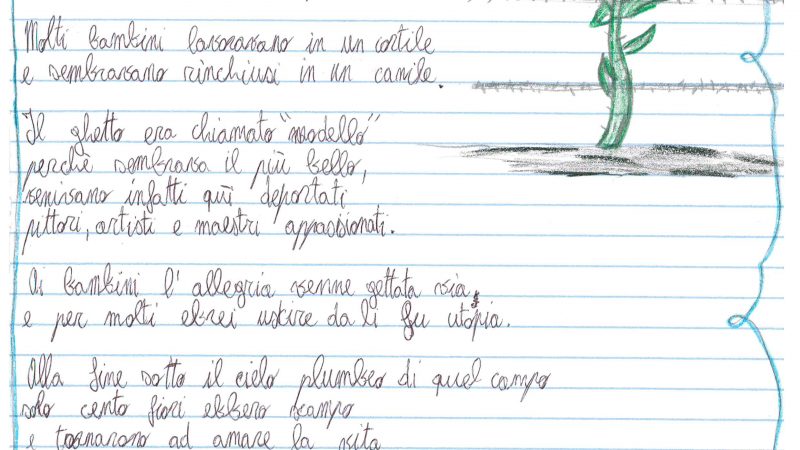 Molti bambini lavoravano in un cortile
e sembravano rinchiusi in un canile.
Il ghetto era chiamato "modello"
perchè sembrava il più bello,
venivano infatti quì deportati
pittori, artisti e maestri appassionati.
Ai bambini l'allegria venne gettata via,
e per molti ebrei uscire da lì fu utopia.
Alla fine sotto il cielo plumbeo di quel campo
solo cento fiori ebbero scampo
e tornarono ad amare la vita